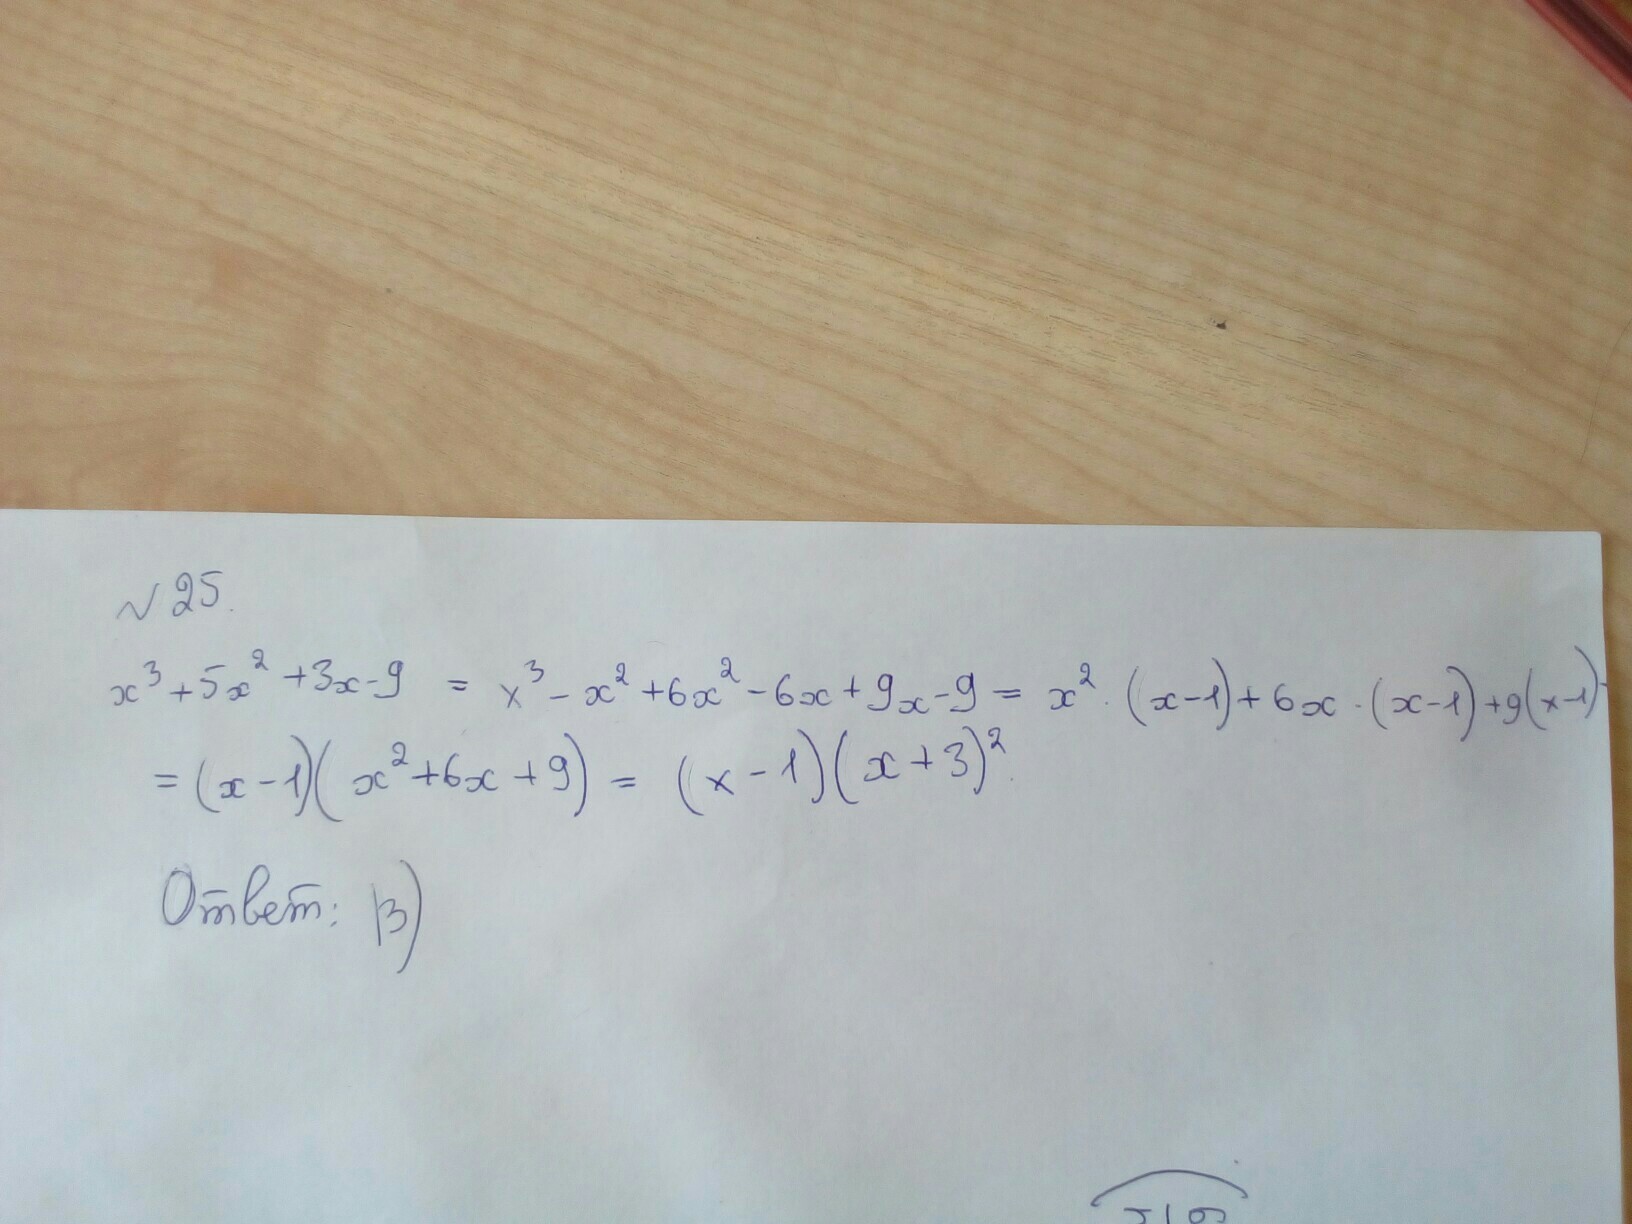 № 25.
x³ + 5x² + 3x - 9 = x³ - x² + 6x² - 6x + 9x - 9 = x² · (x-1) + 6x · (x-1) + 9(x-1)
= (x-1)(x² + 6x + 9) = (x-1)(x+3)².
Ответ: В)